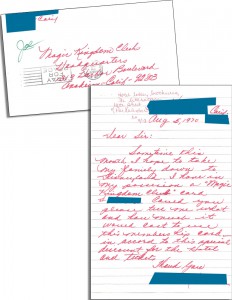 Calif
Joe
Magic Kingdom Club
Headquarters
Boulevard
Anaheim, Calif. 92803
Calif.
Aug 5, 1970
Dear Sir:
Sometime this
month I hope to take
my family down to
Disneyland. I have in
my possession a "Magic
Kingdom Club" card,
Could you
please tell me what
and how much it
would cost to use
this membership card
in accord to this special
discount for the hotel
and tickets.
Thank you